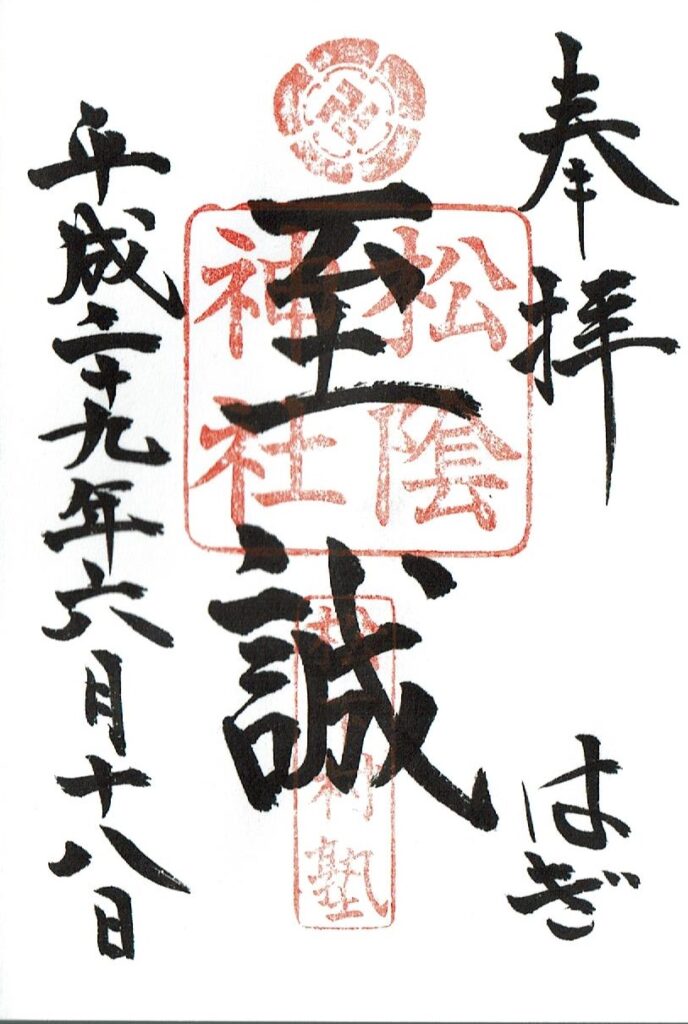 奉拝
はぎ
松陰
神社
至誠
松下村塾
平成二十九年六月十八日